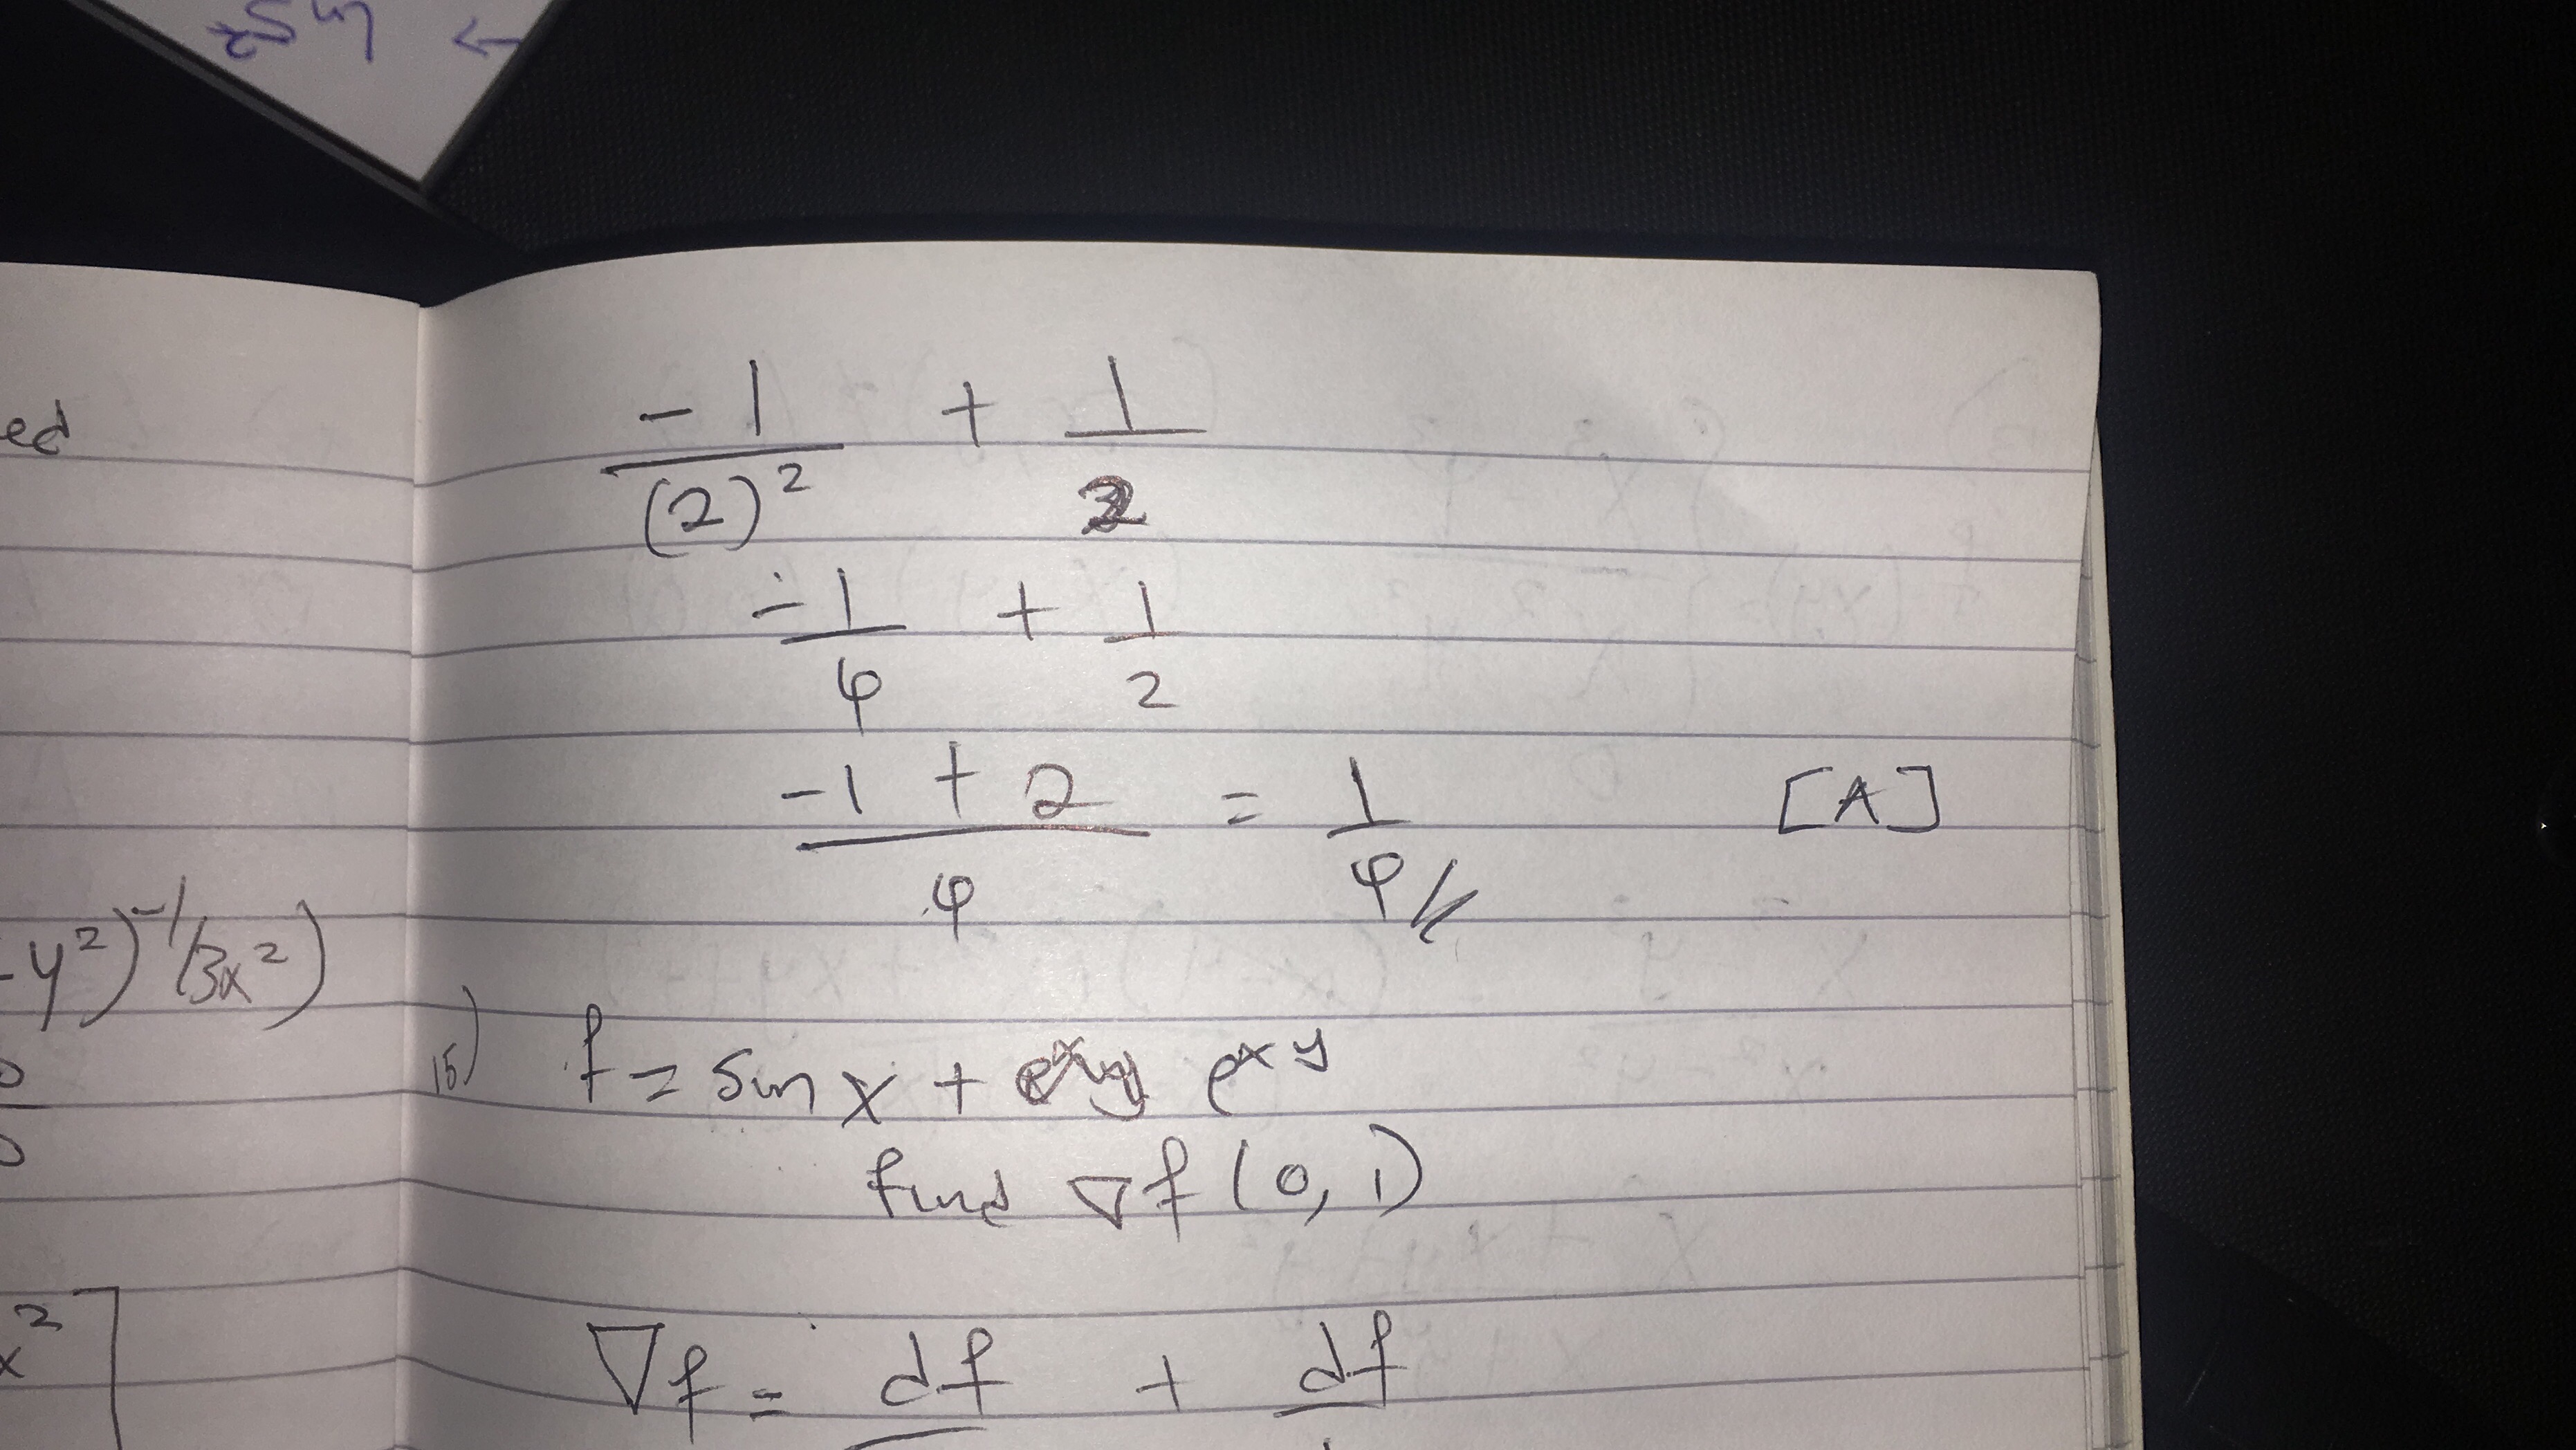 ed
- y²)⁻¹(3x²)
x² ]
-1/(2)² + 1/2
-1/4 + 1/2
(-1 + 2)/4 = 1/4 // [A]
15) f = Sin x + e^xy
find ∇f (0,1)
∇f = df + df